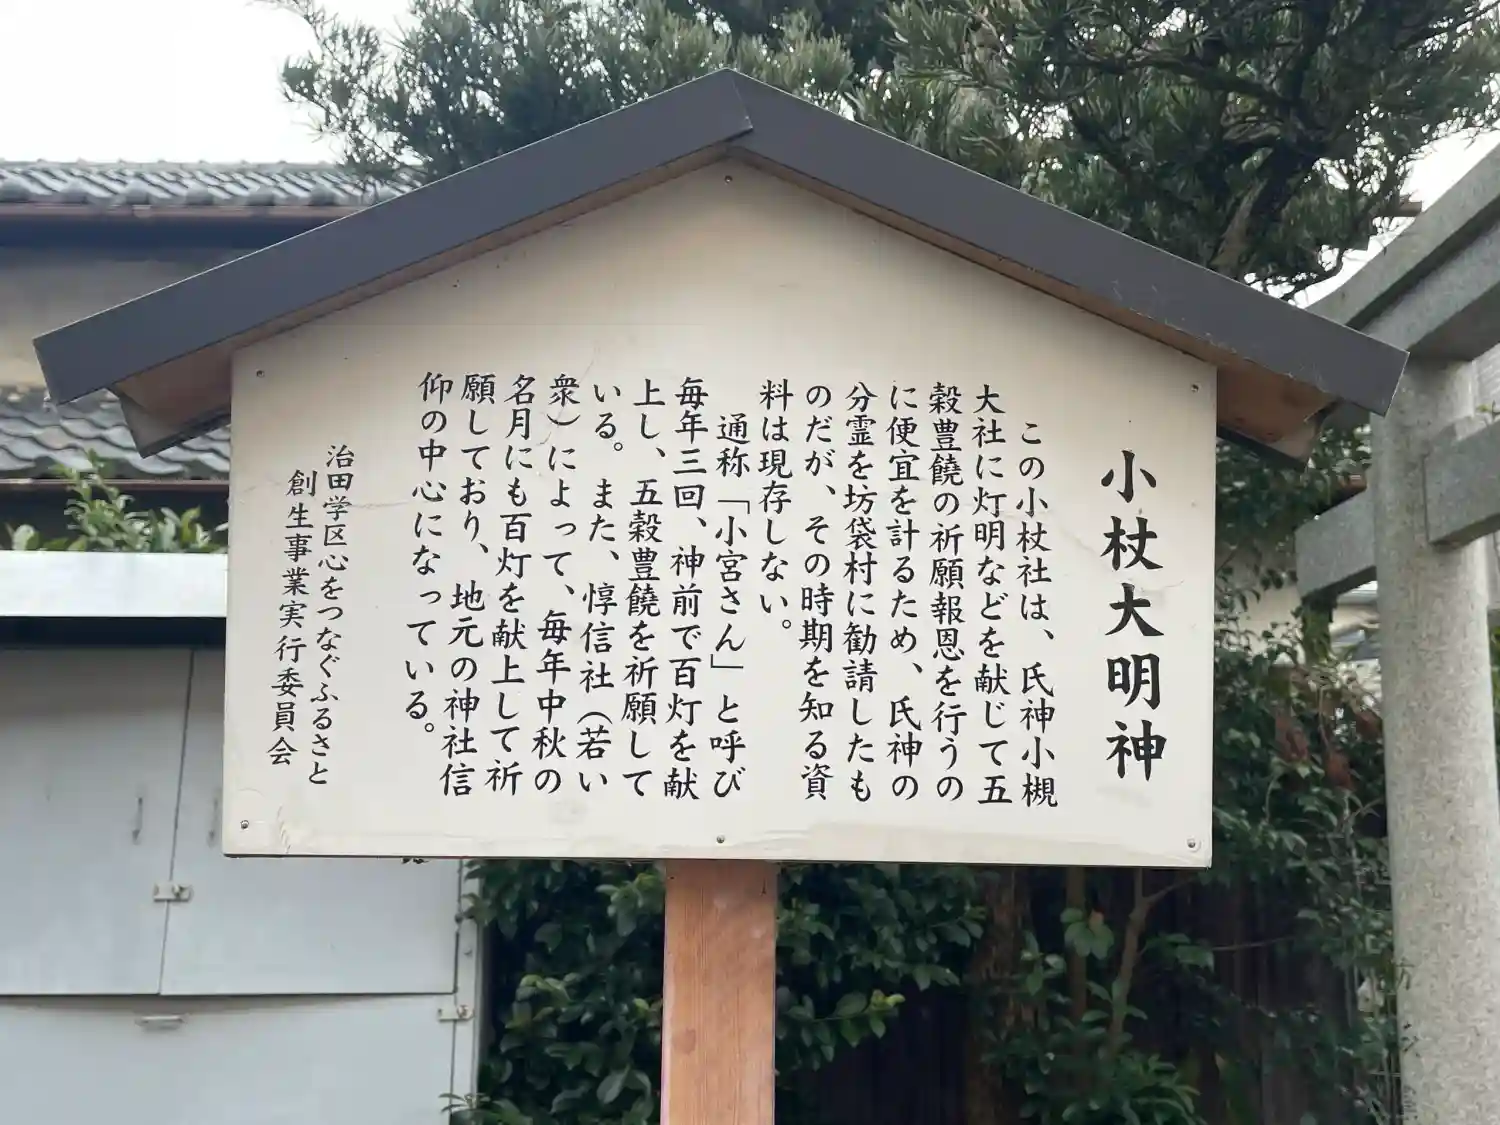 小杖大明神
この小杖社は、氏神小槻
大社に灯明などを献じて五
穀豊饒の祈願報恩を行うの
に便宜を計るため、氏神の
分霊を坊袋村に勧請したも
のだが、その時期を知る資
料は現存しない。
通称「小宮さん」と呼び
毎年三回、神前で百灯を献
上し、五穀豊饒を祈願して
いる。また、惇信社(若い
衆)によって、毎年中秋の
名月にも百灯を献上して祈
願しており、地元の神社信
仰の中心になっている。
治田学区心をつなぐふるさと
創生事業実行委員会